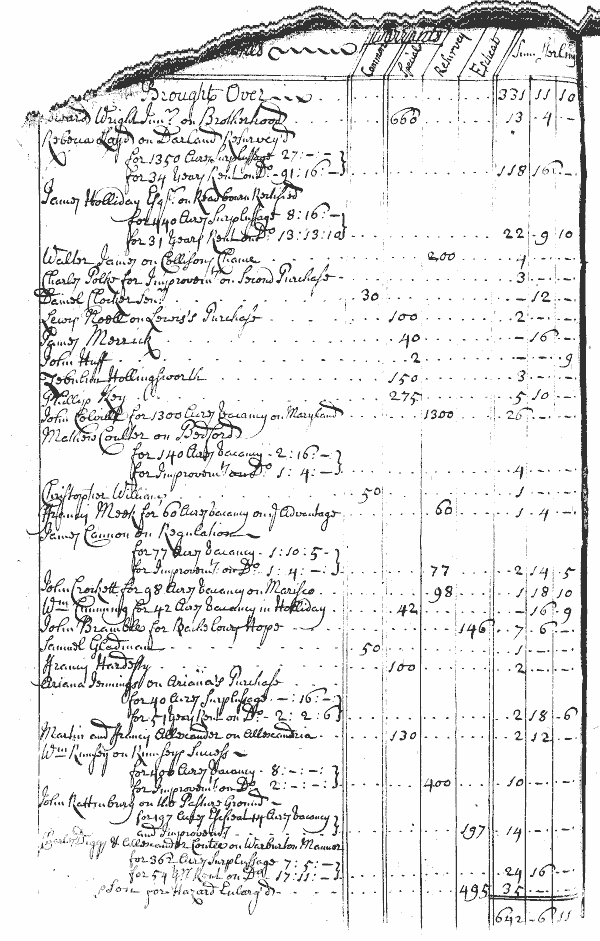 Warrants
Common Special Resurvey Escheat Sum Sterling
Brought Over 331 11 10
Edward Wright Junr. on Brotherhood 660 13 4 -
Rebecca Loyd on Darland Resurvey'd
for 1350 Acres Surplussage 27: - : -
for 34 Years Rent on Do. 91: 16: - 118 16 -
James Holliday Esqr. on Readbourn Rectified
for 440 Acres Surplussage 8: 16: -
for 31 Years Rent on Do. 13: 13: 10 22 9 10
Walter James on Collisons Chance 200 4 -
Charles Polke for Improvemt. on Second Purchase 3 -
Daniel Clocker Senr. 30 - 12 -
Lewis Noell on Lewis's Purchase 100 2 - -
James Merrick 40 - 16 -
John Huff 2 - - 9
Zebulon Hollingsworth 150 3 - -
Phillip Key 275 5 10 -
John Colvill for 1300 Acres Vacancy on Maryland 1300 26 - -
Mathew Coulter on Bedford
for 140 Acres Vacancy 2: 16: -
for Improvemt. on Do. 1: 4: - 4 - -
Christopher Williams 50 1 - -
Francis Meek for 60 Acres Vacancy on ye Advantage 60 1 4 -
James Cannon on Regulation
for 77 Acres Vacancy 1: 10: 5
for Improvemt. on Do. 1: 4: - 77 2 14 5
John Crockett for 98 Acres Vacancy on Marisco 98 1 18 10
Wm. Cumming for 42 Acres Vacancy in Holliday 42 - 16 9
John Brambell for Hope 146 7 6 -
Samuel Gladman 50 1 - -
Francis Hardesty 100 2 - -
Ariana Jennings on Ariana's Purchase
for 40 Acres Surplussage - : 16: -
for 51 Years Rent on Do. 2: 2: 6 2 18 6
Martin and Francis Allexander on Allexandria 130 2 12 -
Wm. Rumsey on Rumseys Success
for 400 Acres Vacancy 8: - : -
for Improvemt. on Do. 2: - : - 400 10 - -
John Rattenbury on the Pasture Ground
for 197 Acres Escheat 14 Acres Vacancy
and Improvemts. 197 14 - -
Charles Diggs & Allexander Contee on Warburton Mannor
for 362 Acres Surplussage 7: 5: -
for 54 Yrs. Rent on Do. 17: 11: - 24 16 -
for Hazard Enlarg'd 495 35 - -
642 6 11